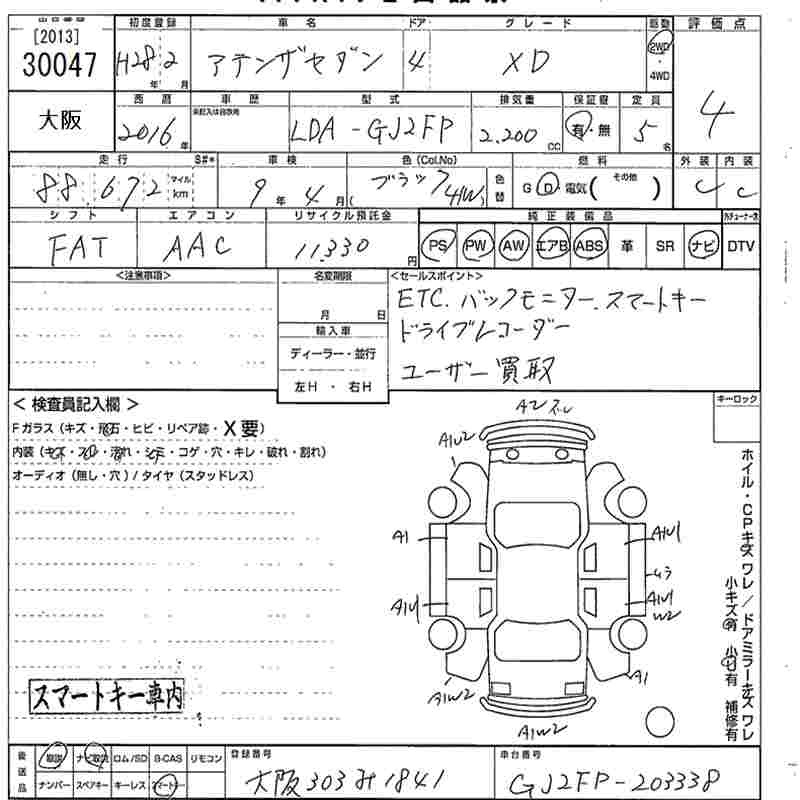 [2013]
30047
大阪
初度登録 車名 ドア グレード 駆動 評価点
H28 2 アテンザセダン 4 XD 2WD 4WD 4
年 月
西暦 車歴 型式 排気量 保証書 定員
2016年 未記入は自家用 LDA-GJ2FP 2.200cc 有・無 5名
走行 S#* 車検 色(Col.No) 燃料 外装 内装
88,672 マイル km 9年4月 ブラック 41W 色替 G D・電気( その他 ) C C
シフト エアコン リサイクル預託金 純正装備品
FAT AAC 11,330円 PS PW AW エアB ABS 革 SR ナビ DTV
<注意事項> 名変期限 <セールスポイント>
月 日
輸入車
ディーラー・並行
左H・右H
ETC. バックモニター. スマートキー
ドライブレコーダー
ユーザー買取
< 検査員記入欄 >
Fガラス(キズ・飛石・ヒビ・リペア跡・X要)
内装(キズ・スレ・汚れ・シミ・コゲ・穴・キレ・破れ・割れ)
オーディオ(無し・穴)/タイヤ(スタッドレス)
キーロック
A2 ズレ
A1U2
A1
A1U1
A1U1
ムラ
A1U1
W2
A1W2
A1
A1W2
ホイル・CPキズ ワレ/ドアミラーキズ ワレ
小キズ有 小凹有 補修有
スマートキー車内
後送品 取説 ナビ取説 ロム/SD B-CAS リモコン
ナンバー スペアキー キーレス スマートキー
登録番号
大阪303み1841
車台番号
GJ2FP-203338